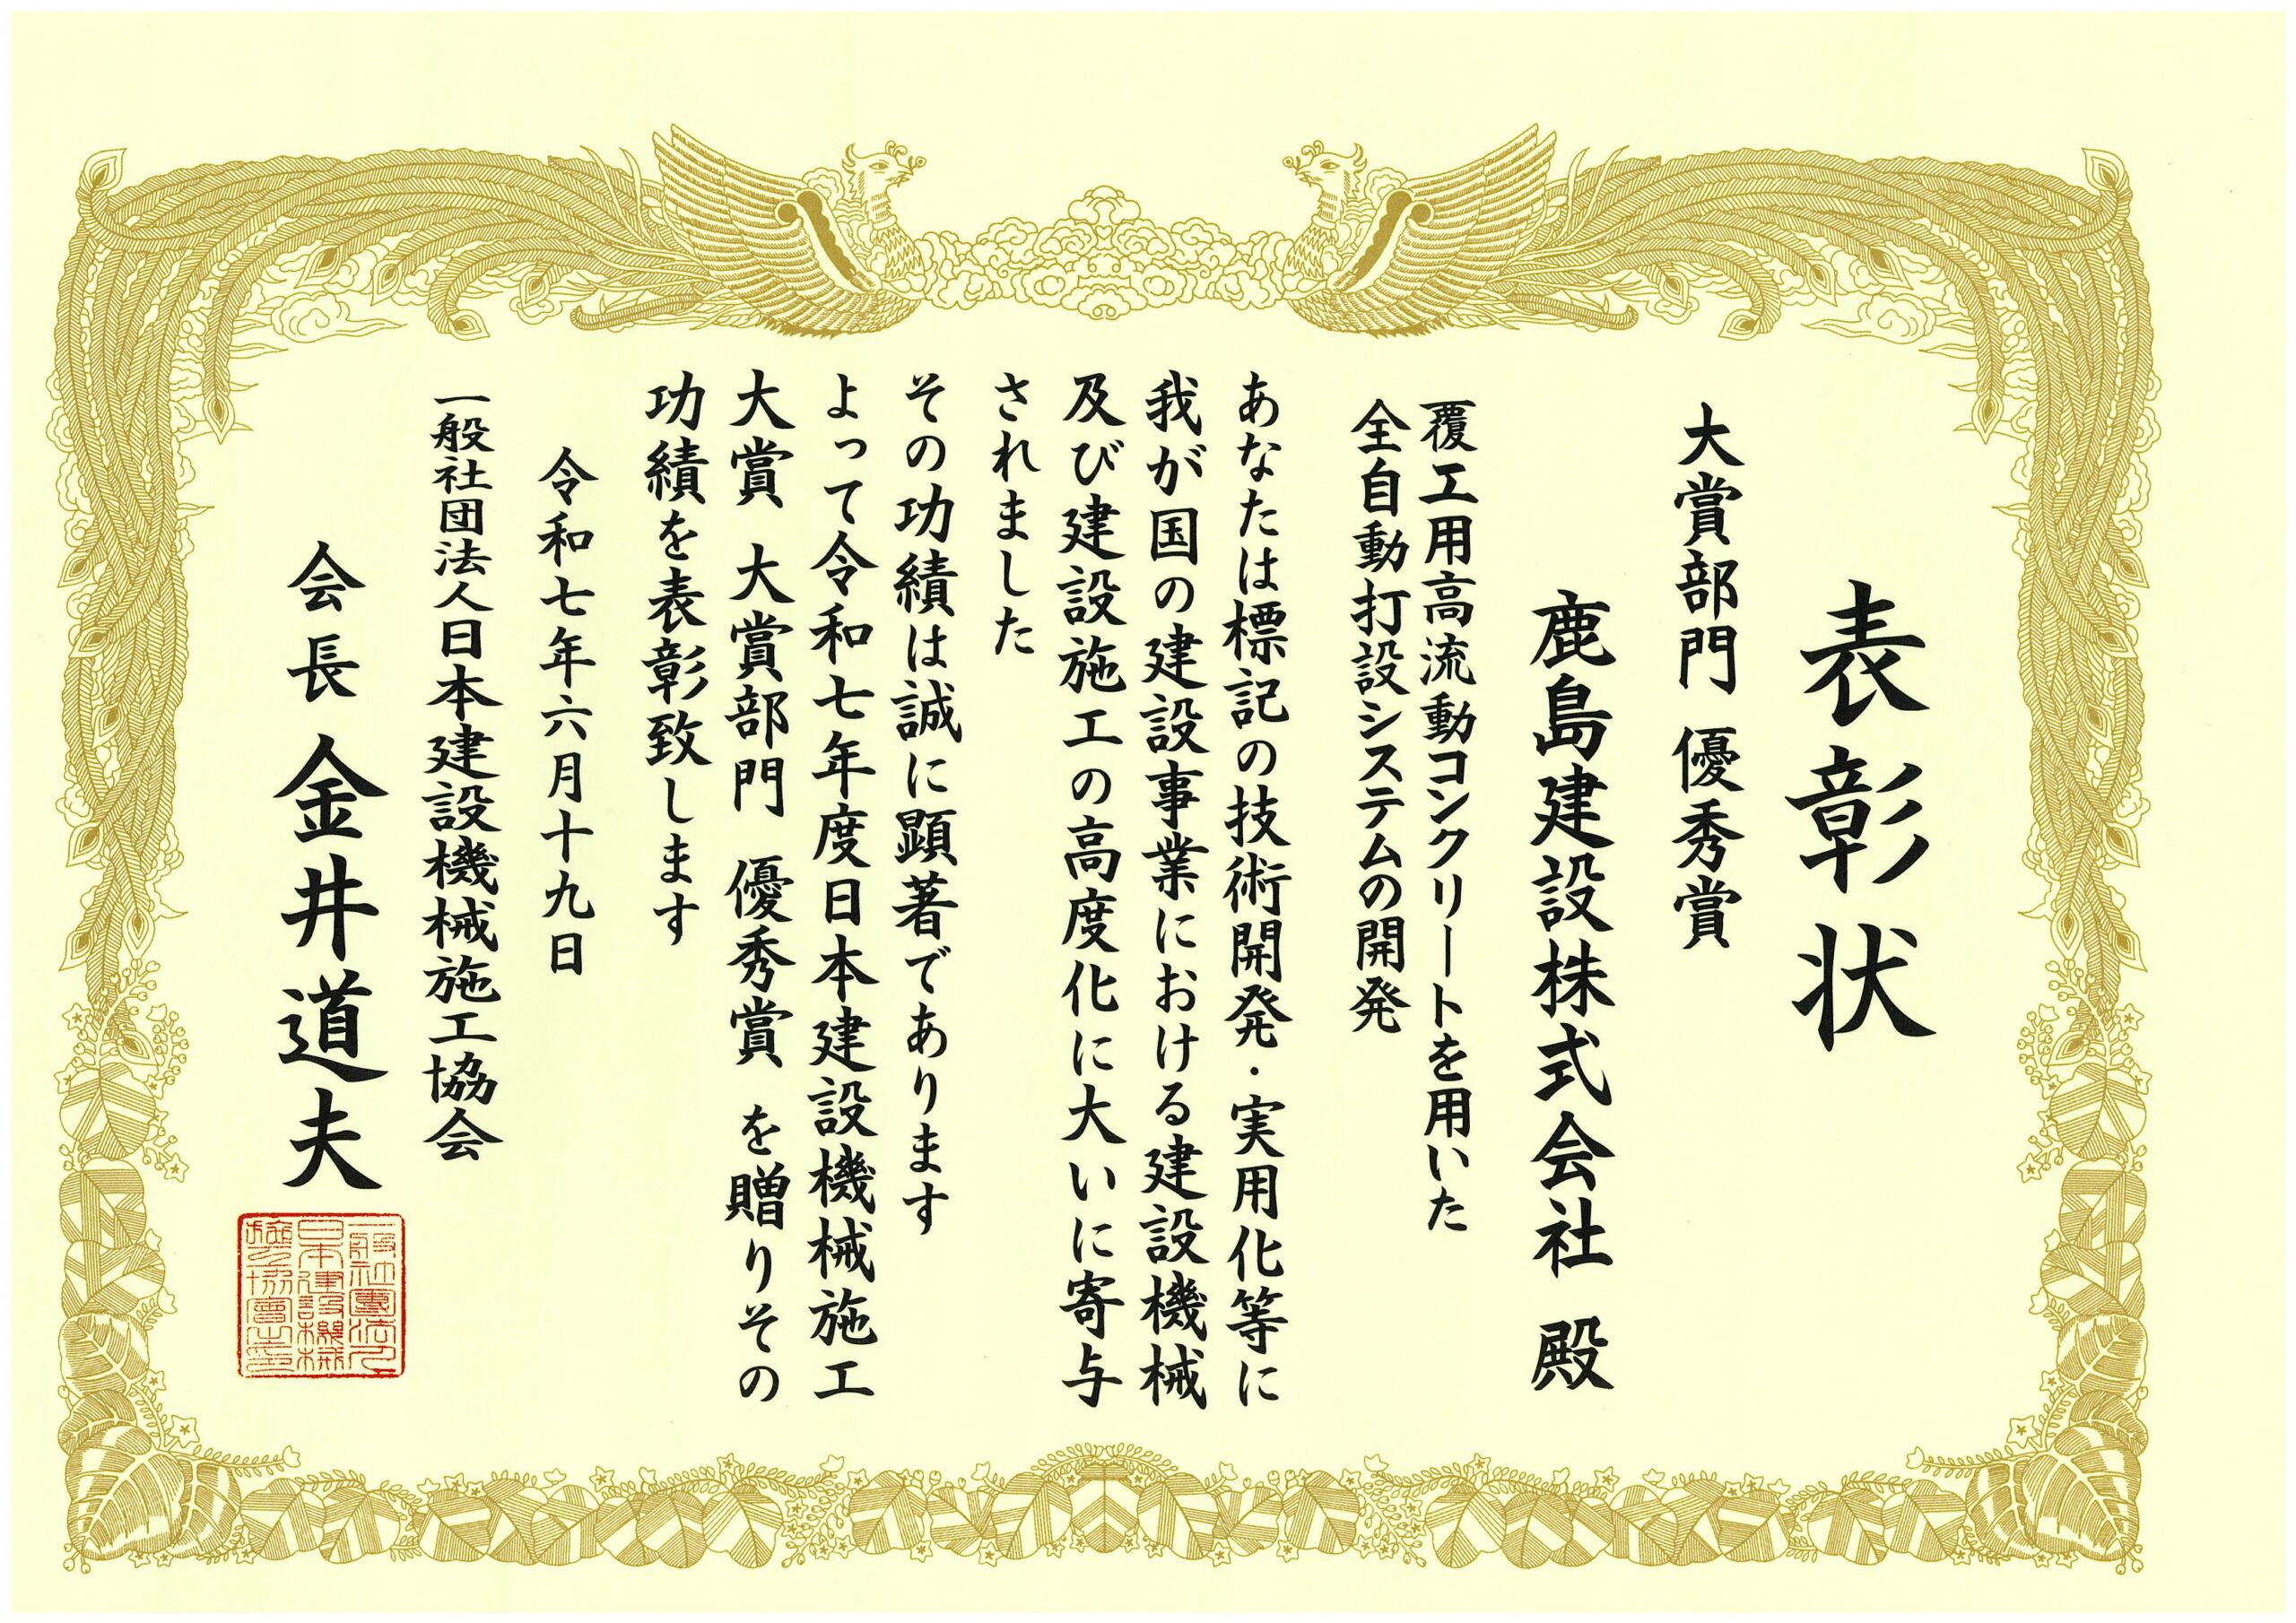 表彰状
大賞部門 優秀賞
鹿島建設株式会社 殿
覆工用高流動コンクリートを用いた
全自動打設システムの開発
あなたは標記の技術開発・実用化等に
我が国の建設事業における建設機械
及び建設施工の高度化に大いに寄与
されました
その功績は誠に顕著であります
よって令和七年度日本建設機械施工
大賞 大賞部門 優秀賞 を贈りその
功績を表彰致します
令和七年六月十九日
一般社団法人日本建設機械施工協会
会長 金井道夫